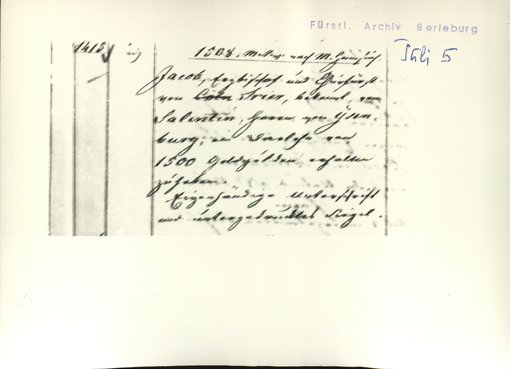 Fürstl. Archiv Berleburg
1415
1508. Mittw. nach
Jacob, Erzbischof und Churfürst
von Cöln Trier, bekennt, von
Salentin, Herrn von Ysen-
burg, ein Darlehn von
1500 Goldgülden erhalten
zu haben.
Eigenhändige Unterschrift
und untergedrucktes Siegel.